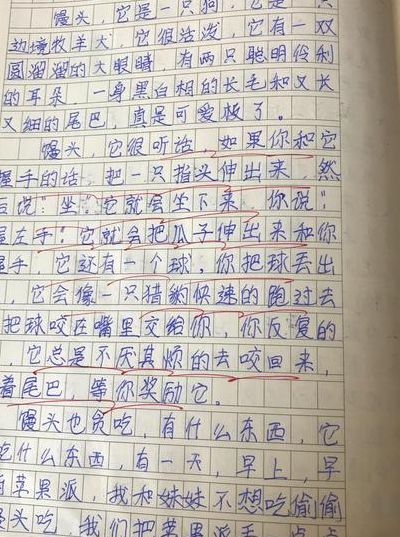 馒头，它是一只狗，它是一只
边境牧羊犬，它很活泼，它有一双
圆溜溜的大眼睛，有两只聪明伶利
的耳朵，一身黑白相的长毛和又长
又细的尾巴，真是可爱极了。
馒头，它很听话，如果你和它
握手的话，把一只指头伸出来，然
后说“坐”它就会坐下来，你说“
握左手”它就会把爪子伸出来和你
握手，它还有一个球，你把球丢出
，它会像一只猎豹快速的跑过去
把球咬在嘴里交给你，你反复的
，它总是不厌其烦的去咬回来，
着尾巴，等你奖励它。
馒头也贪吃，有什么东西，它
吃什么东西，有一天，早上，早
有苹果派，我和妹妹不想吃偷偷
馒头吃，我们把苹果派丢一点点